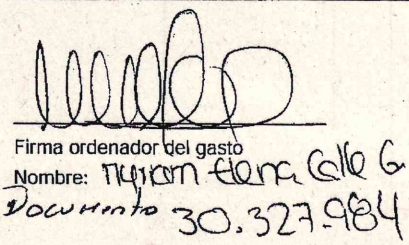 Firma ordenador del gasto
Nombre: Myriam Elena Calle G.
Documento 30.327.984